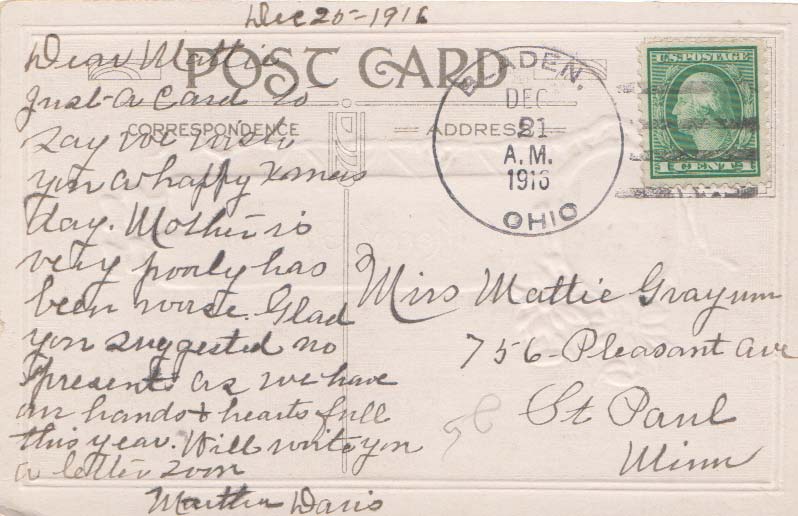 Dec 20-1916
Dear Mattie
POST CARD
Just a Card to
CORRESPONDENCE
ADDRESS
say we wish
you a happy Xmas
day. Mother is
very poorly has
been worse. Glad
you suggested no
presents as we have
our hands & hearts full
this year. Will write you
a letter soon
Martha Davis
BLADEN,
DEC
21
A.M.
1916
OHIO
U.S. POSTAGE
1 CENT 1
Miss Mattie Grayum
756-Pleasant Ave
St Paul
Minn